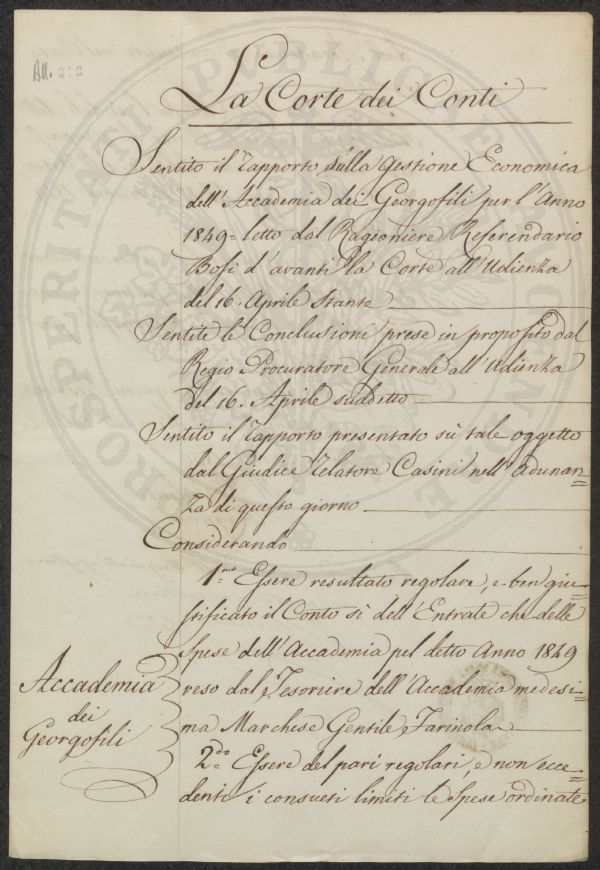 La Corte dei Conti
Sentito il Rapporto sulla gestione Economica
dell'Accademia dei Georgofili per l'Anno
1849= letto dal Ragioniere Referendario
Bosi d'avanti la Corte all'Udienza
del 16. Aprile stante
Sentite le Conclusioni prese in proposito dal
Regio Procuratore Generale all'Udienza
del 16. Aprile suddetto
Sentito il Rapporto presentato sù tale oggetto
dal Giudice Relatore Casini nell'Adunan=
za di questo giorno
Considerando
1.mo Essere resultato regolare, e ben giu=
stificato il Conto sì dell'Entrate che delle
Spese dell'Accademia pel detto Anno 1849
reso dal Tesoriere dell'Accademia medesi=
ma Marchese Gentile Farinola
2.do Essere del pari regolari, e non ecce=
denti i consueti limiti le Spese ordinate
Accademia
dei
Georgofili
PROSPERITATI PUBLICAE AUGENDAE